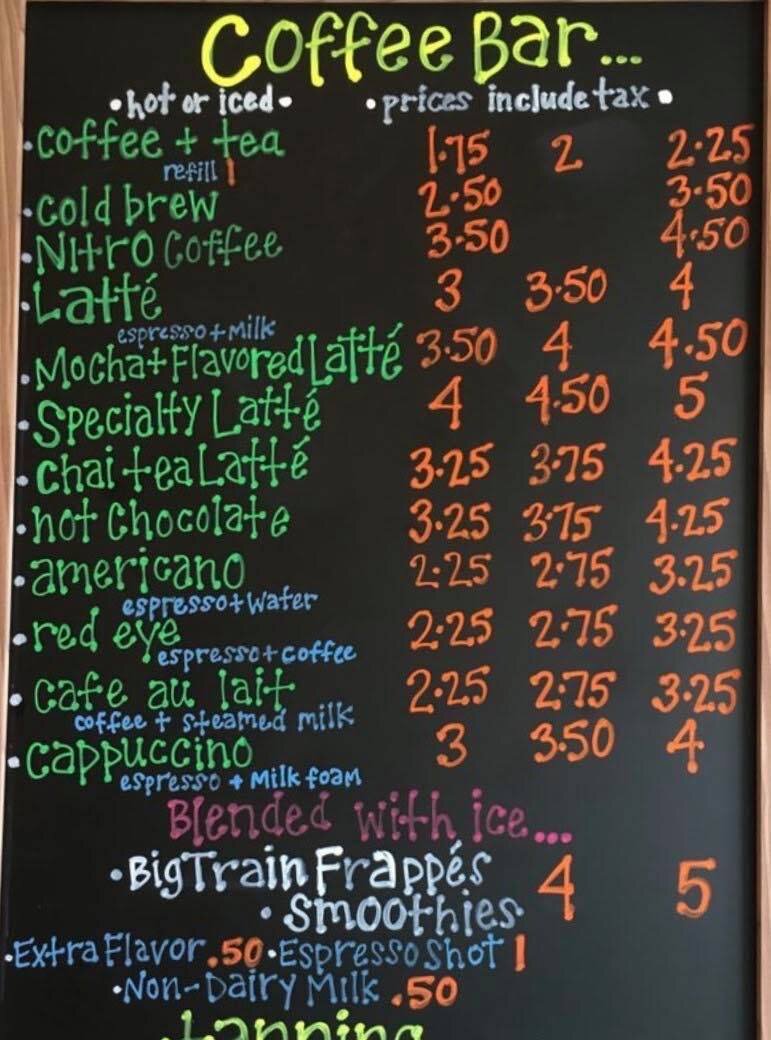 Coffee Bar...
•hot or iced• •prices include tax•
•coffee + tea 1.75 2 2.25
refill 1
•cold brew 2.50 3.50
•Nitro Coffee 3.50 4.50
•Latté 3 3.50 4
espresso + milk
•Mocha + Flavored Latté 3.50 4 4.50
•Specialty Latté 4 4.50 5
•chai tea Latté 3.25 3.75 4.25
•hot Chocolate 3.25 3.75 4.25
•americano 2.25 2.75 3.25
espresso + water
•red eye 2.25 2.75 3.25
espresso + coffee
•cafe au lait 2.25 2.75 3.25
coffee + steamed milk
•cappuccino 3 3.50 4
espresso + milk foam
Blended with ice...
•Big Train Frappés 4 5
•Smoothies
•Extra Flavor .50 •Espresso Shot 1
•Non-Dairy Milk .50
•tanning